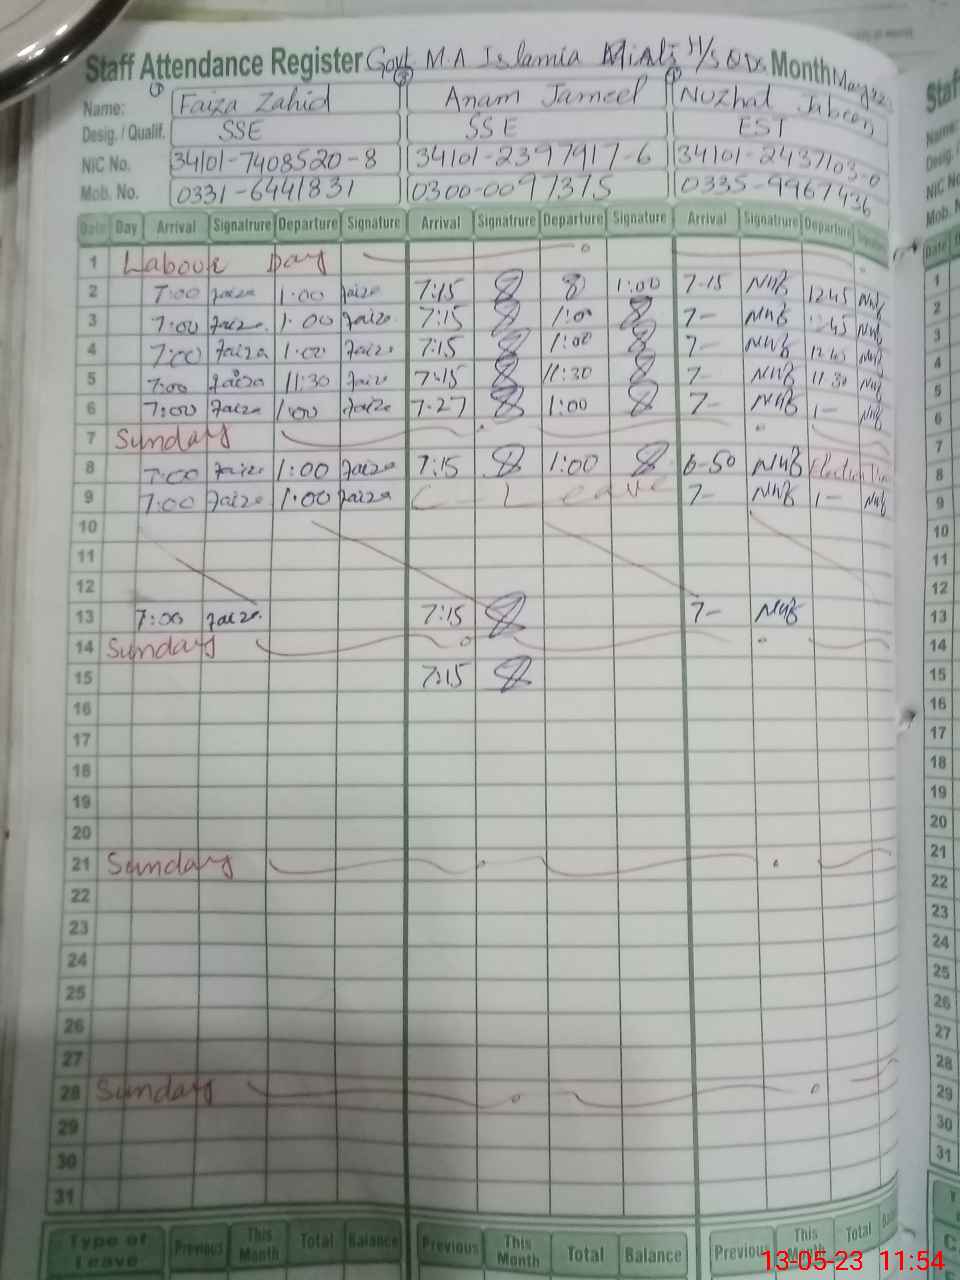 Staff Attendance Register Govt M.A Islamia H/S Month
Name: Faiza Zahid Anam Jameel Nuzhat Jabeen
Desig. / Qualif. SSE SSE EST
NIC No. 34101-7408520-8 34101-2397917-6 34101-2437103-0
Mob. No. 0331-6441831 0300-0097375 0335-9967436
Date Day Arrival Signatrure Departure Signature Arrival Signatrure Departure Signature Arrival Signatrure Departure
1 Labour Day
2 7:00 faiza 1:00 faiza 7:15 1:00 7-15 1245
3 7:00 faiza 1:00 faiza 7:15 1:00 7- 1245
4 7:00 faiza 1:00 faiza 7:15 1:00 7- 1245
5 7:00 faiza 11:30 faiza 7:15 11:30 7- 11 30
6 7:00 faiza 1:00 faiza 7:27 1:00 7- 1-
7 Sunday
8 7:00 faiza 1:00 faiza 7:15 1:00 6-50 Election
9 7:00 faiza 1:00 faiza C-Leave 7- 1-
10
11
12
13 7:00 faiza 7:15 7-
14 Sunday
15 7:15
16
17
18
19
20
21 Sunday
22
23
24
25
26
27
28 Sunday
29
30
31
Type of Leave Previous This Month Total Balance Previous This Month Total Balance Previous This Month Total
13-05-23 11:54